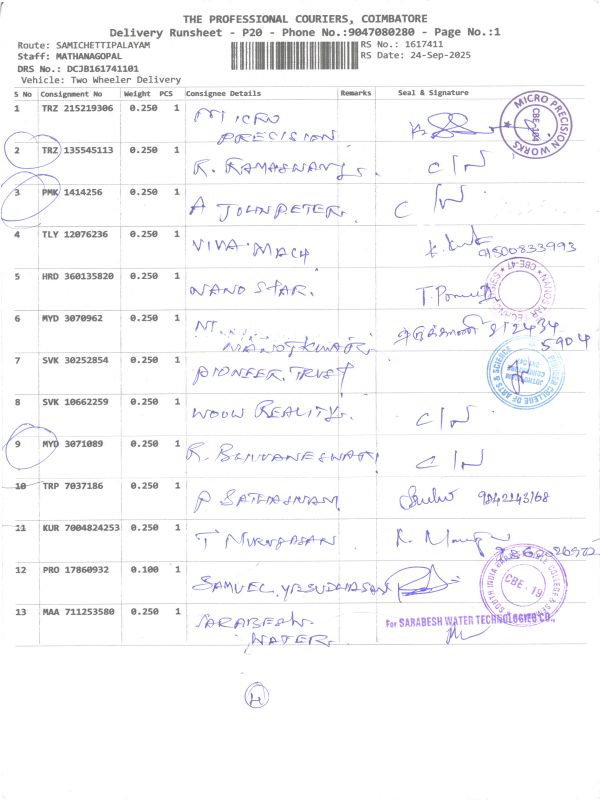 THE PROFESSIONAL COURIERS, COIMBATORE
Delivery Runsheet - P20 - Phone No.:9047080280 - Page No.:1
Route: SAMICHETTIPALAYAM RS No.: 1617411
Staff: MATHANAGOPAL RS Date: 24-Sep-2025
DRS No.: DCJB161741101
Vehicle: Two Wheeler Delivery
S No Consignment No Weight PCS Consignee Details Remarks Seal & Signature
1 TRZ 215219306 0.250 1 MICRO
PRECISION
MICRO PRECISION WORKS CBE-104
2 TRZ 135545113 0.250 1 R. RAMASWAMY. C/N
3 PMK 1414256 0.250 1 A JOHN PETER. C/N
4 TLY 12076236 0.250 1 VIVA. MACH 9500833993
5 HRD 360135820 0.250 1 NANO STAR.
CBE-47
6 MYD 3070962 0.250 1 NT. 812434
MANOJ KUMAR. 5904
7 SVK 30252854 0.250 1 PIONEER. TRUST
PIONEER COLLEGE OF ARTS & SCIENCE
8 SVK 10662259 0.250 1 WOOW REALITYS. C/N
9 MYD 3071089 0.250 1 R. BHUVANESWARI C/N
10 TRP 7037186 0.250 1 P SATHASIVAM 9842143168
11 KUR 7004824253 0.250 1 T MURUGASAN.
12 PRO 17860932 0.100 1 SAMUEL. YESUDHASAN
CBE - 19
13 MAA 711253580 0.250 1 SARABESH
WATER
For SARABESH WATER TECHNOLOGIES CO.,